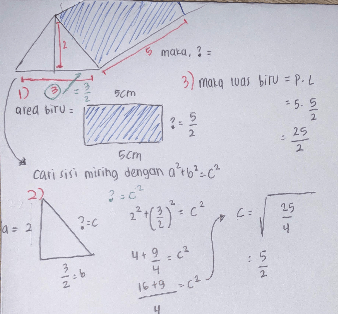 2
5
maka, ? =
1)
3 = 3/2
3) maka luas biru = P.L
area biru =
5cm
? = 5/2
= 5. 5/2
5cm
= 25/2
Cari sisi miring dengan a²+b²=c²
2)
? = c²
a = 2
? = c
3/2 = b
2² + (3/2)² = c²
4 + 9/4 = c²
16+9/4 = c²
c = √25/4
= 5/2